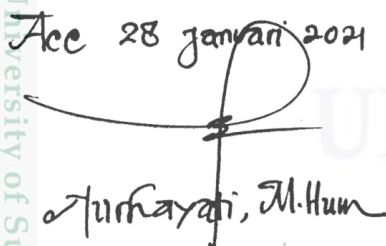 Acc 28 januari 2021
Nurhayati, M.Hum
iversity of Su
U